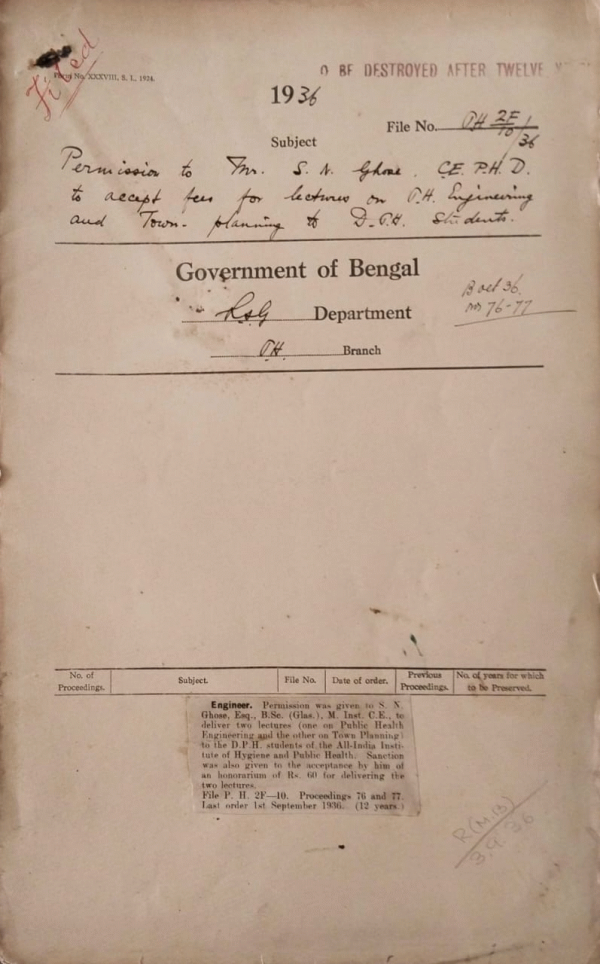 Filed
Form No. XXXVIII, S. L. 1936.
O BE DESTROYED AFTER TWELVE
1936
File No. PH 2F/10/1/36
Subject
Permission to Mr. S. N. Ghose, C.E. P.H.D.
to accept fees for lectures on P.H. Engineering
and Town-planning to D.P.H. Students.
Government of Bengal
LSG Department
B Oct 36.
nos 76-77
P.H. Branch
No. of Proceedings. Subject. File No. Date of order. Previous Proceedings. No. of years for which to be Preserved.
Engineer. Permission was given to S. N.
Ghose, Esq., B.Sc. (Glas.), M. Inst. C.E., to
deliver two lectures (one on Public Health
Engineering and the other on Town Planning)
to the D.P.H. students of the All-India Insti-
tute of Hygiene and Public Health. Sanction
was also given to the acceptance by him of
an honorarium of Rs. 60 for delivering the
two lectures.
File P. H. 2F—10. Proceedings 76 and 77.
Last order 1st September 1936. (12 years.)
3.9.36